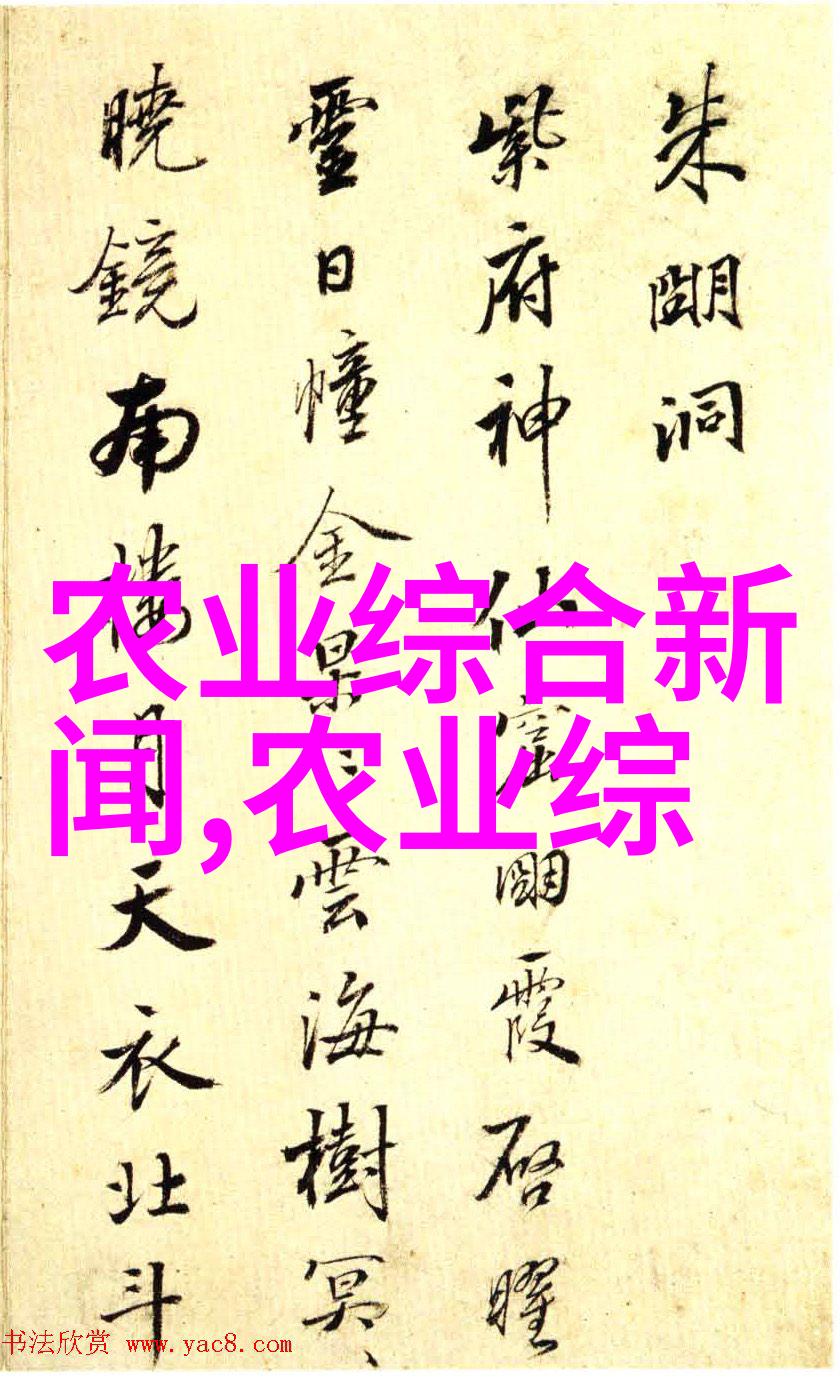 朱明洞
紫府神仙窟明霞啓曜
靈日幢金景〻雲海樹冥〻
曉鏡南樓月天衣北斗
农业综合新
闻,农业综
书法欣赏 www.yac8.com